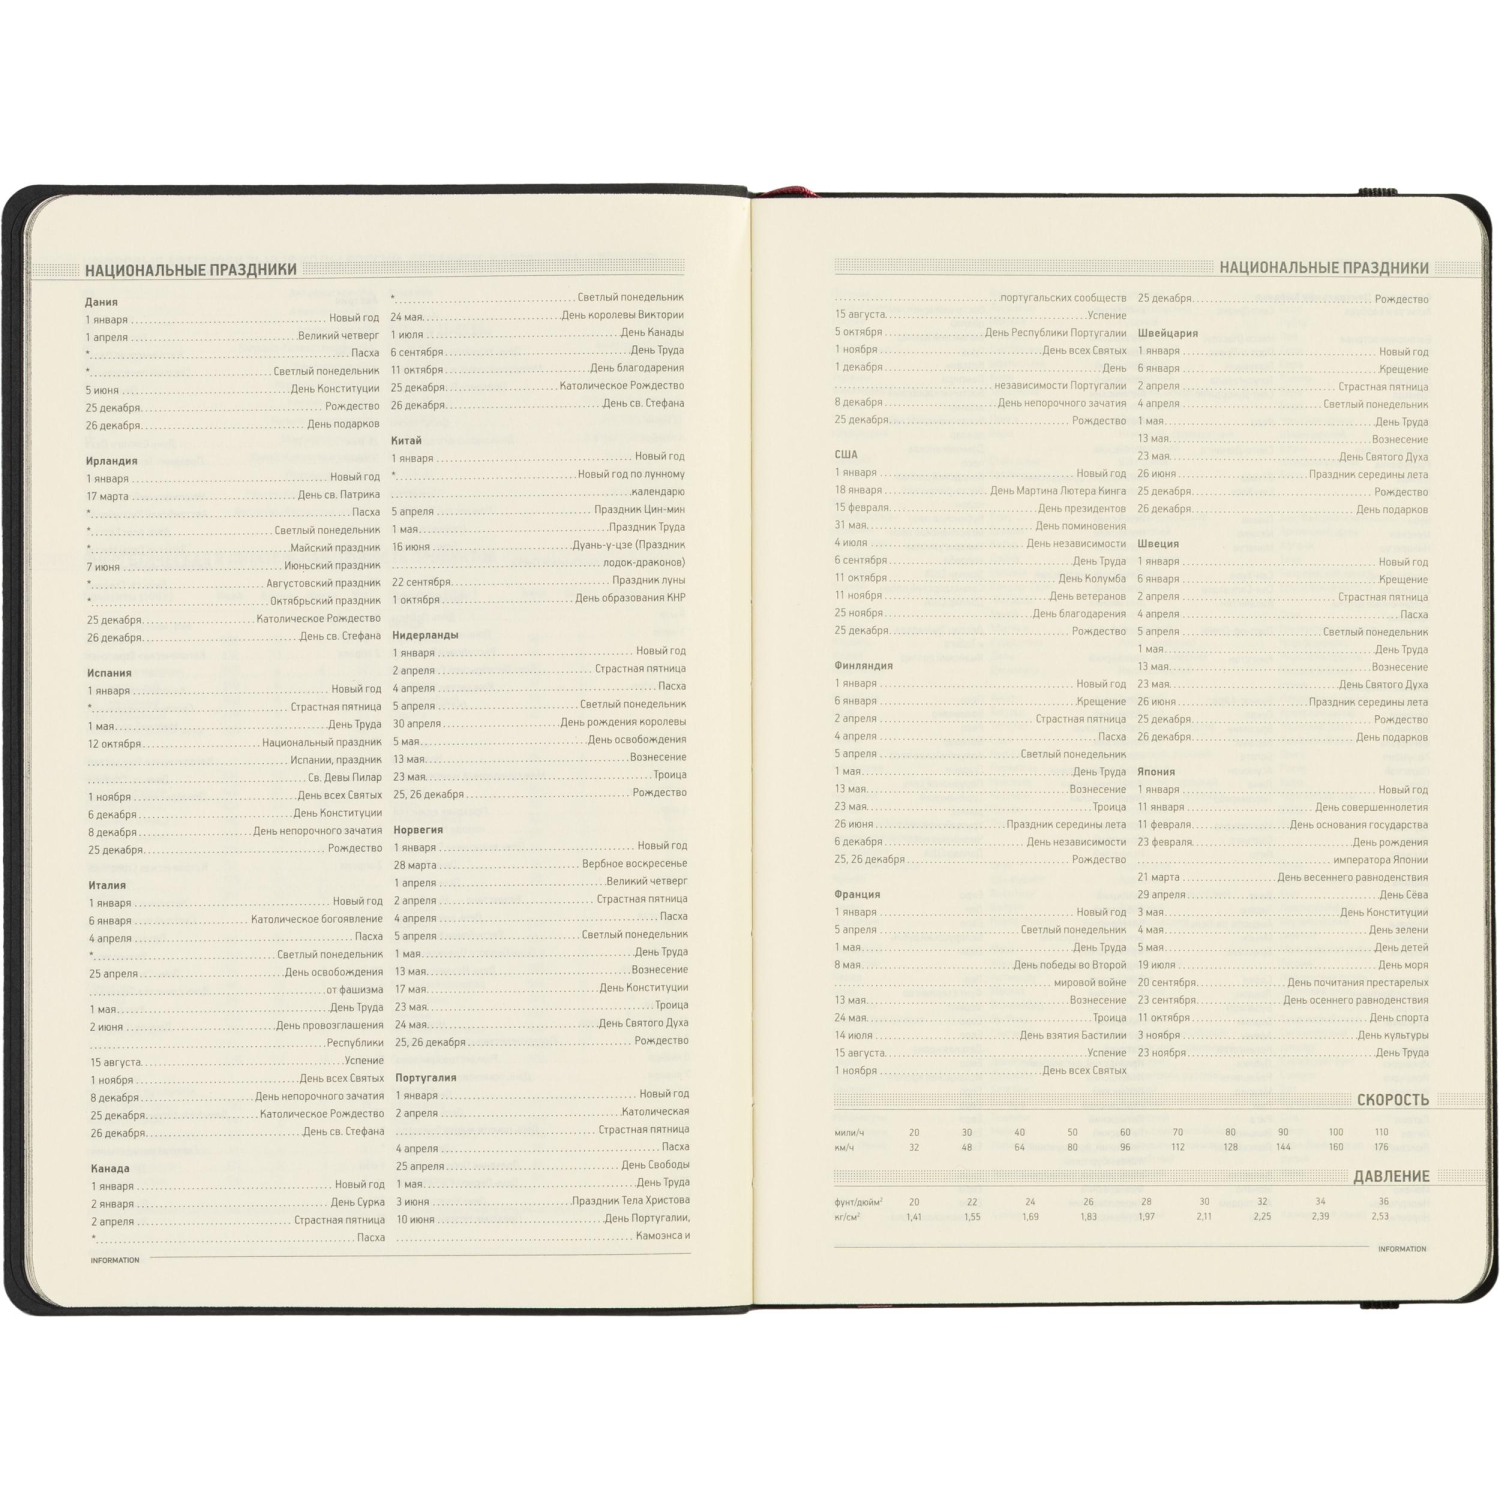 НАЦИОНАЛЬНЫЕ ПРАЗДНИКИ
Дания
1 января Новый год
1 апреля Великий четверг
* Пасха
* Светлый понедельник
5 июня День Конституции
25 декабря Рождество
26 декабря День подарков
Ирландия
1 января Новый год
17 марта День св. Патрика
* Пасха
* Светлый понедельник
* Майский праздник
7 июня Июньский праздник
* Августовский праздник
* Октябрьский праздник
25 декабря Католическое Рождество
26 декабря День св. Стефана
Испания
1 января Новый год
* Страстная пятница
1 мая День Труда
12 октября Национальный праздник
Испании, праздник
Св. Девы Пилар
1 ноября День всех Святых
6 декабря День Конституции
8 декабря День непорочного зачатия
25 декабря Рождество
Италия
1 января Новый год
6 января Католическое богоявление
4 апреля Пасха
* Светлый понедельник
25 апреля День освобождения
от фашизма
1 мая День Труда
2 июня День провозглашения
Республики
15 августа Успение
1 ноября День всех Святых
8 декабря День непорочного зачатия
25 декабря Католическое Рождество
26 декабря День св. Стефана
Канада
1 января Новый год
2 января День Сурка
2 апреля Страстная пятница
* Пасха
* Светлый понедельник
24 мая День королевы Виктории
1 июля День Канады
6 сентября День Труда
11 октября День благодарения
25 декабря Католическое Рождество
26 декабря День св. Стефана
Китай
1 января Новый год
* Новый год по лунному
календарю
5 апреля Праздник Цин-мин
1 мая Праздник Труда
16 июня Дуань-у-цзе (Праздник
лодок-драконов)
22 сентября Праздник луны
1 октября День образования КНР
Нидерланды
1 января Новый год
2 апреля Страстная пятница
4 апреля Пасха
5 апреля Светлый понедельник
30 апреля День рождения королевы
5 мая День освобождения
13 мая Вознесение
23 мая Троица
25, 26 декабря Рождество
Норвегия
1 января Новый год
28 марта Вербное воскресенье
1 апреля Великий четверг
2 апреля Страстная пятница
4 апреля Пасха
5 апреля Светлый понедельник
1 мая День Труда
13 мая Вознесение
17 мая День Конституции
23 мая Троица
24 мая День Святого Духа
25, 26 декабря Рождество
Португалия
1 января Новый год
2 апреля Католическая
Страстная пятница
4 апреля Пасха
25 апреля День Свободы
1 мая День Труда
3 июня Праздник Тела Христова
10 июня День Португалии,
Камоэнса и
INFORMATION
НАЦИОНАЛЬНЫЕ ПРАЗДНИКИ
португальских сообществ
15 августа Успение
5 октября День Республики Португалии
1 ноября День всех Святых
1 декабря День
независимости Португалии
8 декабря День непорочного зачатия
25 декабря Рождество
США
1 января Новый год
18 января День Мартина Лютера Кинга
15 февраля День президентов
31 мая День поминовения
4 июля День независимости
6 сентября День Труда
11 октября День Колумба
11 ноября День ветеранов
25 ноября День благодарения
25 декабря Рождество
Финляндия
1 января Новый год
6 января Крещение
2 апреля Страстная пятница
4 апреля Пасха
5 апреля Светлый понедельник
1 мая День Труда
13 мая Вознесение
23 мая Троица
26 июня Праздник середины лета
6 декабря День независимости
25, 26 декабря Рождество
Франция
1 января Новый год
5 апреля Светлый понедельник
1 мая День Труда
8 мая День победы во Второй
мировой войне
13 мая Вознесение
24 мая Троица
14 июля День взятия Бастилии
15 августа Успение
1 ноября День всех Святых
25 декабря Рождество
Швейцария
1 января Новый год
6 января Крещение
2 апреля Страстная пятница
4 апреля Светлый понедельник
1 мая День Труда
13 мая Вознесение
23 мая День Святого Духа
26 июня Праздник середины лета
25 декабря Рождество
26 декабря День подарков
Швеция
1 января Новый год
6 января Крещение
2 апреля Страстная пятница
4 апреля Пасха
5 апреля Светлый понедельник
1 мая День Труда
13 мая Вознесение
23 мая День Святого Духа
26 июня Праздник середины лета
25 декабря Рождество
26 декабря День подарков
Япония
1 января Новый год
11 января День совершеннолетия
11 февраля День основания государства
23 февраля День рождения
императора Японии
21 марта День весеннего равноденствия
29 апреля День Сёва
3 мая День Конституции
4 мая День зелени
5 мая День детей
19 июля День моря
20 сентября День почитания престарелых
23 сентября День осеннего равноденствия
11 октября День спорта
3 ноября День культуры
23 ноября День Труда
СКОРОСТЬ
мили/ч 20 30 40 50 60 70 80 90 100 110
км/ч 32 48 64 80 96 112 128 144 160 176
ДАВЛЕНИЕ
фунт/дюйм² 20 22 24 26 28 30 32 34 36
кг/см² 1,41 1,55 1,69 1,83 1,97 2,11 2,25 2,39 2,53
INFORMATION